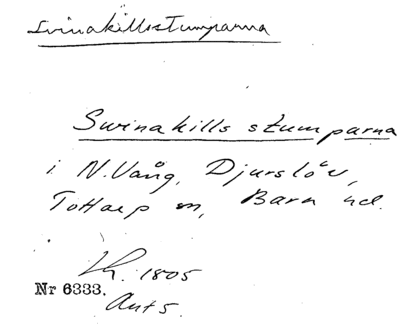 Svinakillsstumparna
Swinakills stumparna
i N. Vång, Djurslöv,
Tottarp sn, Bara hd.
Lh. 1805
Nr 6333.
Ant 5.